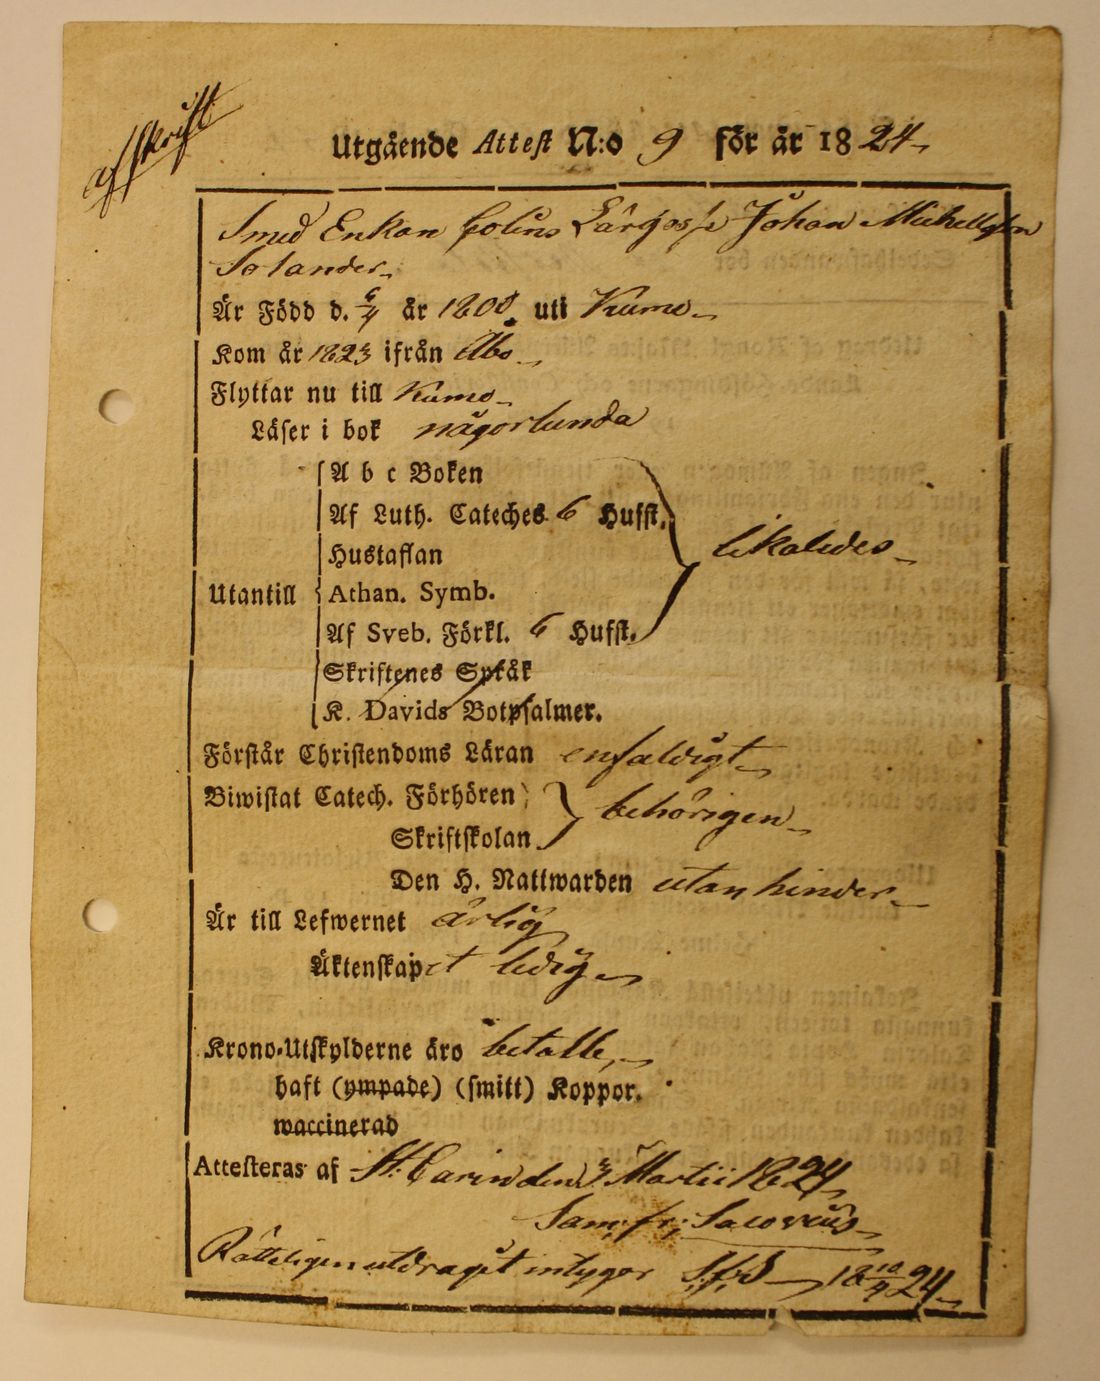 afskrift
Utgående Attest N:o 9 för år 1824
Smed Enkan Colins Lärgosse Johan Michellsson
Solander
Är Född d. 6/4 år 1800 uti Kumo
Kom år 1823 ifrån Åbo
Flyttar nu till Kumo
Läser i bok någorlunda
A b c Boken
Af Luth. Cateches 6 Hufst.
Hustaflan
likaledes
Utantill Athan. Symb.
Af Sveb. Förkl. 6 Hufst.
Skriftenes Språk
K. Davids Botpsalmer.
Förstår Christendoms Läran enfaldigt
Biwistat Catech. Förhören behörigen
Skriftskolan
Den H. Nattwarden utan hinder
Är till Lefwernet ärlig
Äktenskapet ledig
Krono-Utskylderne äro betalte,
haft (ympade) (smitt) Koppor.
waccinerad
Attesteras af St. Carin den 3 Martii 1824
Sam: fr: Salovius
Rätteligen utdraget intygar S:f:S 18 10/4 24